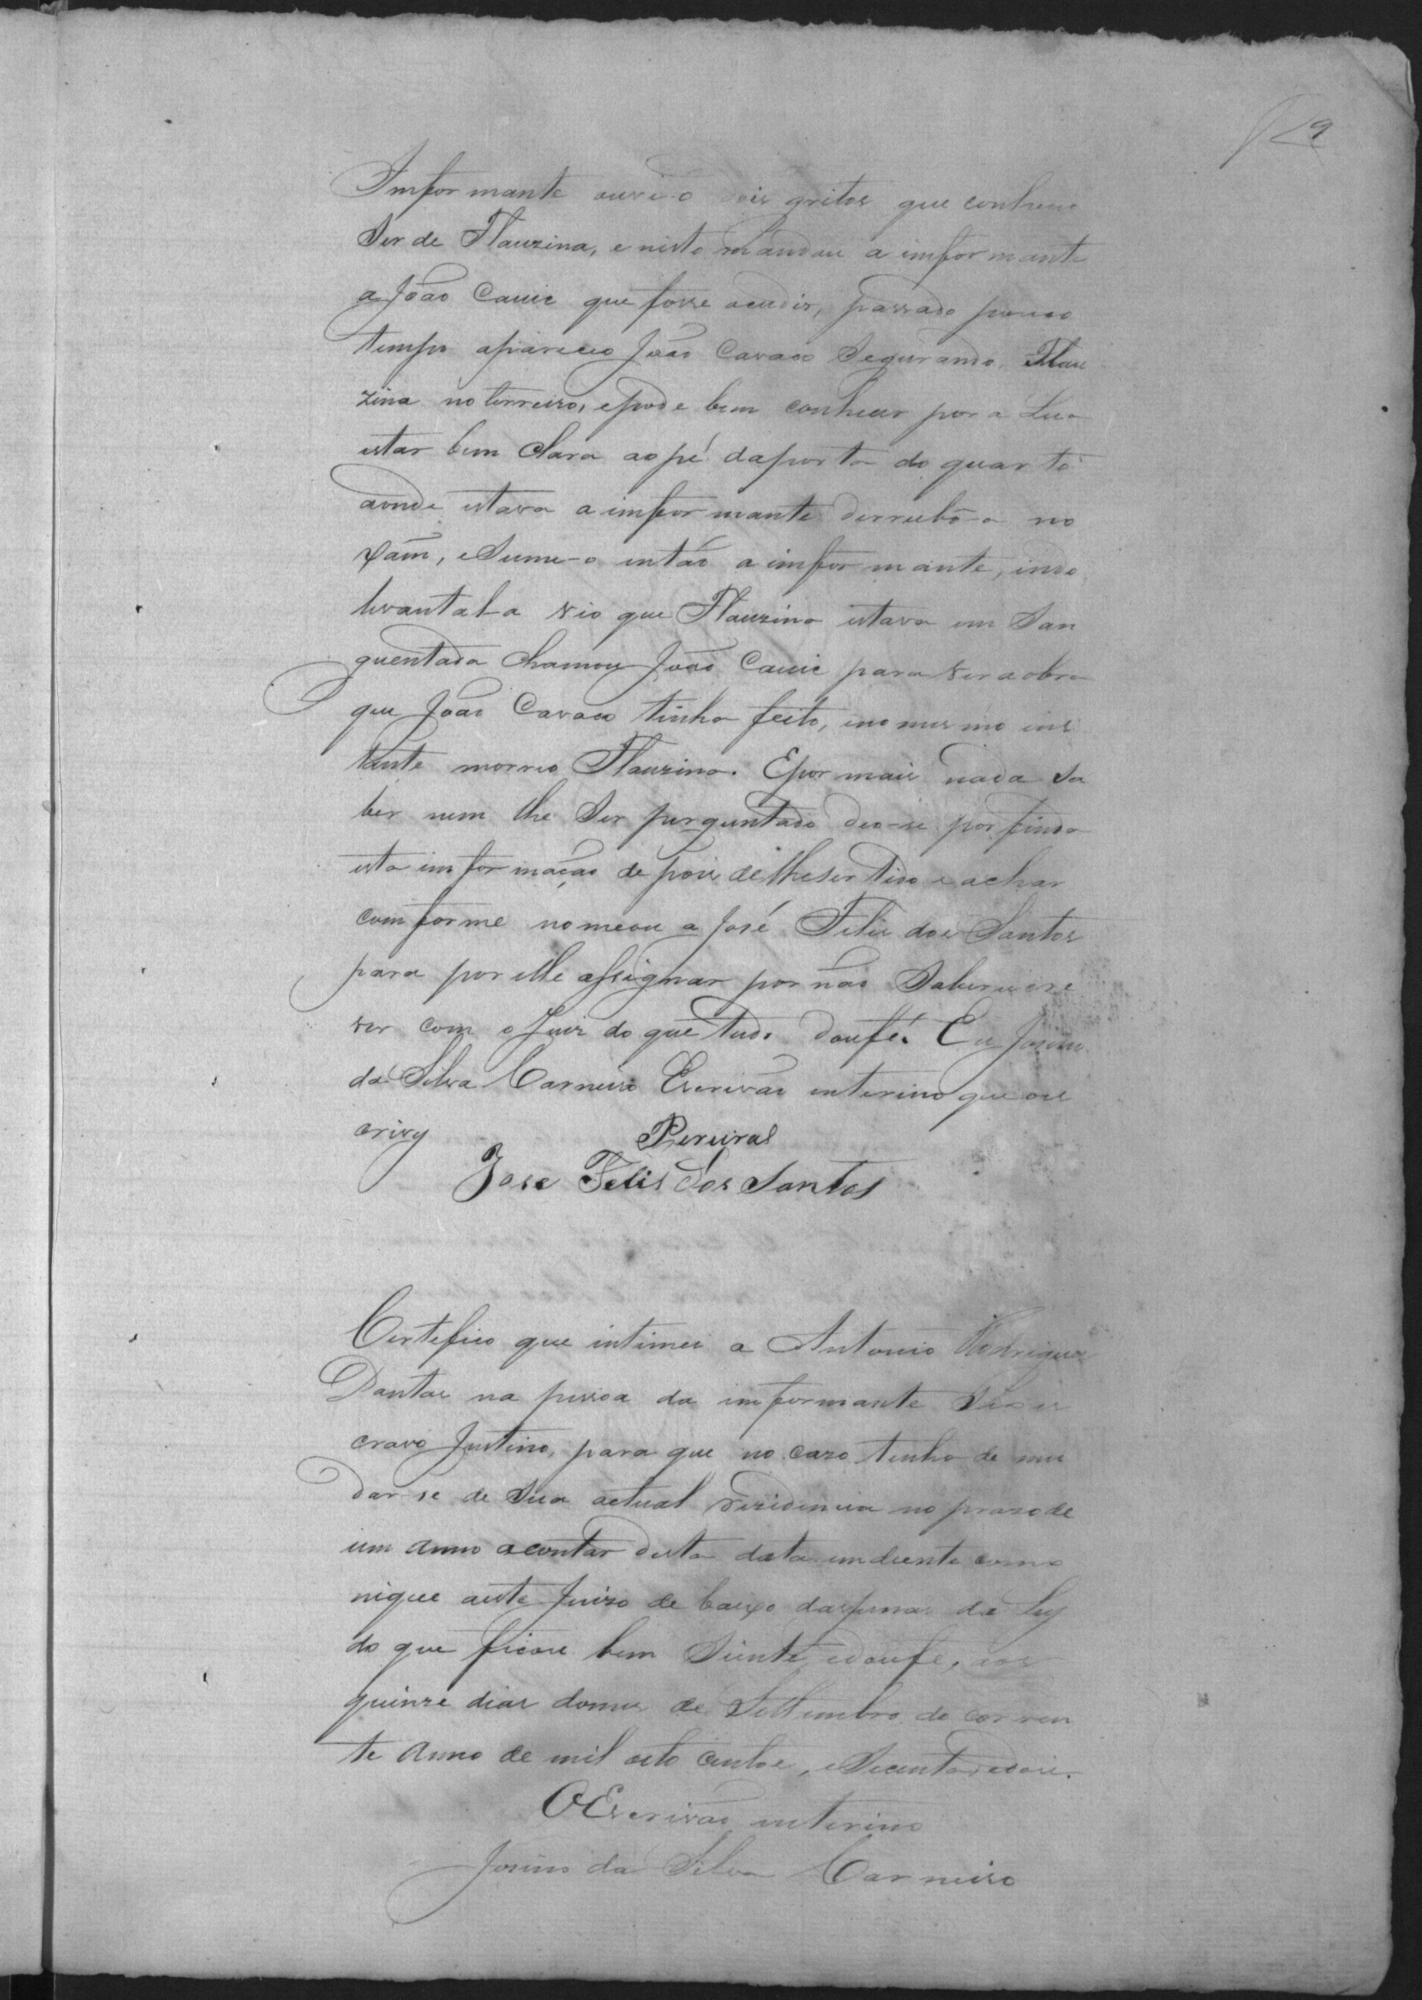 Imformante ouvi-o dois gritos que conheceo
Ser de Flauzina, e nisto mandou a imformante
a João Cauic que fosse acudir, passado pouco
tempo apareceo João Cavaco Segurando Flau
zina no terreiro, e pode bem conhecer por a Lua
estar bem Clara ao pé da porta do quarto
aonde estava a imformante derrubô-a no
xám, e Sume-o então a imformante, indo
levantal-a vio que Flauzina estava em San
guentada chamou João Cauic para ver a obra
que João Cavaco tinha feito, e no mesmo ins
tante morreo Flauzina. E por mais nada Sa
ber nem lhe Ser perguntado deo-se por findo
esta imformação de pois de lhe ser lido e achar
comforme nomeou a José Felis dos Santos
para por elle assignar por não Saber escre
ver com o Juis do que tudo doufé. Eu Josino
da Silva Carneiro Escrivão enterino que o es
crivy
José Felis dos Santos
Certefico que intimei a Antonio Rodrigues
Dantas na pessoa da imformante
cravo Justino, para que no cazo tenha de mu
dar-se de Sua actual rezidencia no prazo de
um anno a contar desta data em diente como
nique aeste Juizo de baixo das penas da Ley
do que ficou bem Siente, e doufe, aos
quinze dias do mes de Settembro do corren
te Anno de mil oito centos, e Secenta e dois.
O Escrivão enterino
Josino da Silva Carneiro